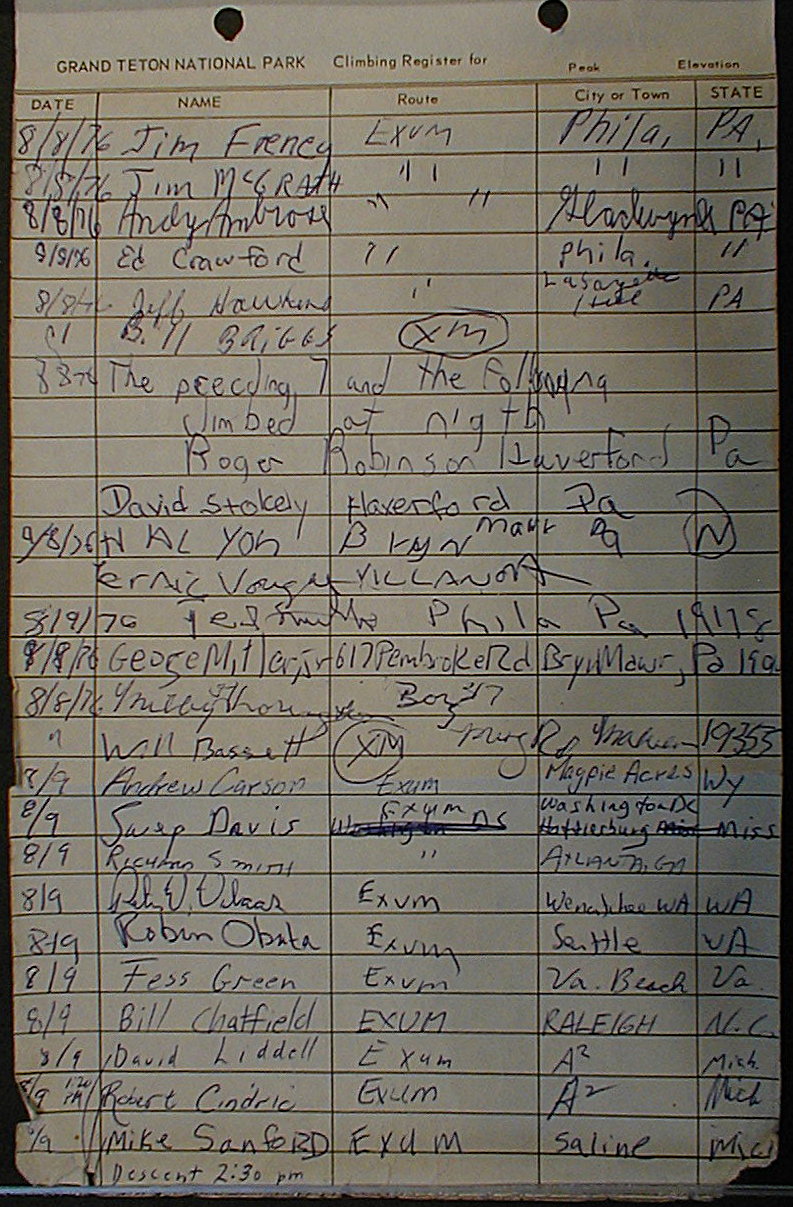 GRAND TETON NATIONAL PARK Climbing Register for Peak Elevation
DATE NAME Route City or Town STATE
8/8/76 Jim Freney Exum Phila, PA,
8/8/76 Jim McGRATH " " " "
8/8/76 Andy Ambrose " " Gladwyne PA
8/8/76 Ed Crawford " Phila. "
8/8/76 Jeff Hawkins " Lafayette Hill PA
Bill BRIGGS XM
8 8 76 The preceding 7 and the following
climbed at night
Roger Robinson Haverford Pa
David Stokely Haverford Pa
9/8/76 HAL YOH BRYN Mawr Pa N
Ernie VILLANOVA
8/9/76 Ted Phila Pa 19118
8/8/76 George Mitler, jr 617 Pembroke Rd Bryn Mawr, Pa 190
8/8/76 Box
" Will Bassett XM Rd 19355
8/9 Andrew Carson Exum Magpie Acres Wy
8/9 Swep Davis Exum Washington DC Hattiesburg Miss
8/9 Richman Smith " ATLANTA, GA
8/9 Exum Wenatchee WA WA
8-19 Robin Obata Exum Seattle WA
8/9 Fess Green Exum Va. Beach Va.
8/9 Bill Chatfield EXUM RALEIGH N.C.
8/9 David Liddell Exum A² Mich
8/9 1:20 PM Robert Cindric Exum A² Mich
8/9 Mike SanfoRD EXUM Saline Mic
Descent 2:30 pm